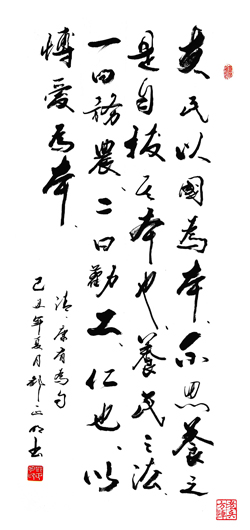 夫民以國為本、不思養之
是自拔其本也、養民之法、
一曰務農、二曰勸工、仁也、以
博愛為本、
清·康有為句
己丑年夏月
書